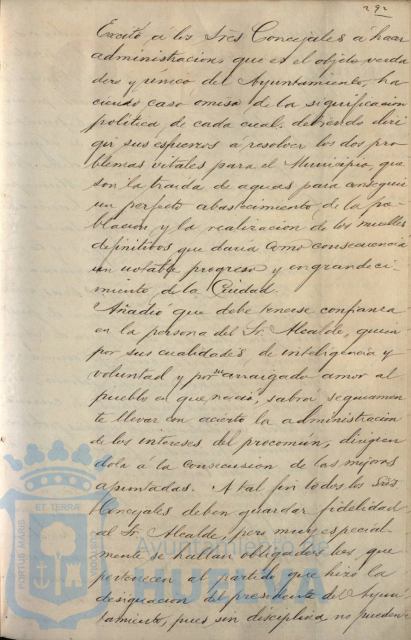 292
Excitó á los Sres Concejales á hacer
administracion, que es el objeto verda
dero y único del Ayuntamiento, ha
ciendo caso omiso de la significacion
política de cada cual: debiendo diri
gir sus esfuerzos á resolver los dos pro
blemas vitales para el Municipio, que
son la traida de aguas para conseguir
un perfecto abastecimiento de la po
blacion, y la realizacion de los muelles
definitivos que daria como consecuencia
un notable progreso y engrandeci-
miento de la Ciudad.
Añadió que debe tenerse confianza
en la persona del Sr. Alcalde, quien
por sus cualidades de inteligencia y
voluntad y por su arraigado amor al
pueblo en que nació, sabrá seguramen
te llevar con acierto la administracion
de los intereses del procomún, dirigien
dola á la consecucion de las mejoras
apuntadas. A tal fin todos los Sres
Concejales deben guardar fidelidad
al Sr. Alcalde, pero muy especial-
mente se hallan obligados los que
pertenecen al partido que hizo la
designacion del presidente del Ayun
tamiento, pues sin disciplina no pueden
PORTUS MARIS
ET TERRA
CUSTODIA
Ayuntamiento de
HUELVA